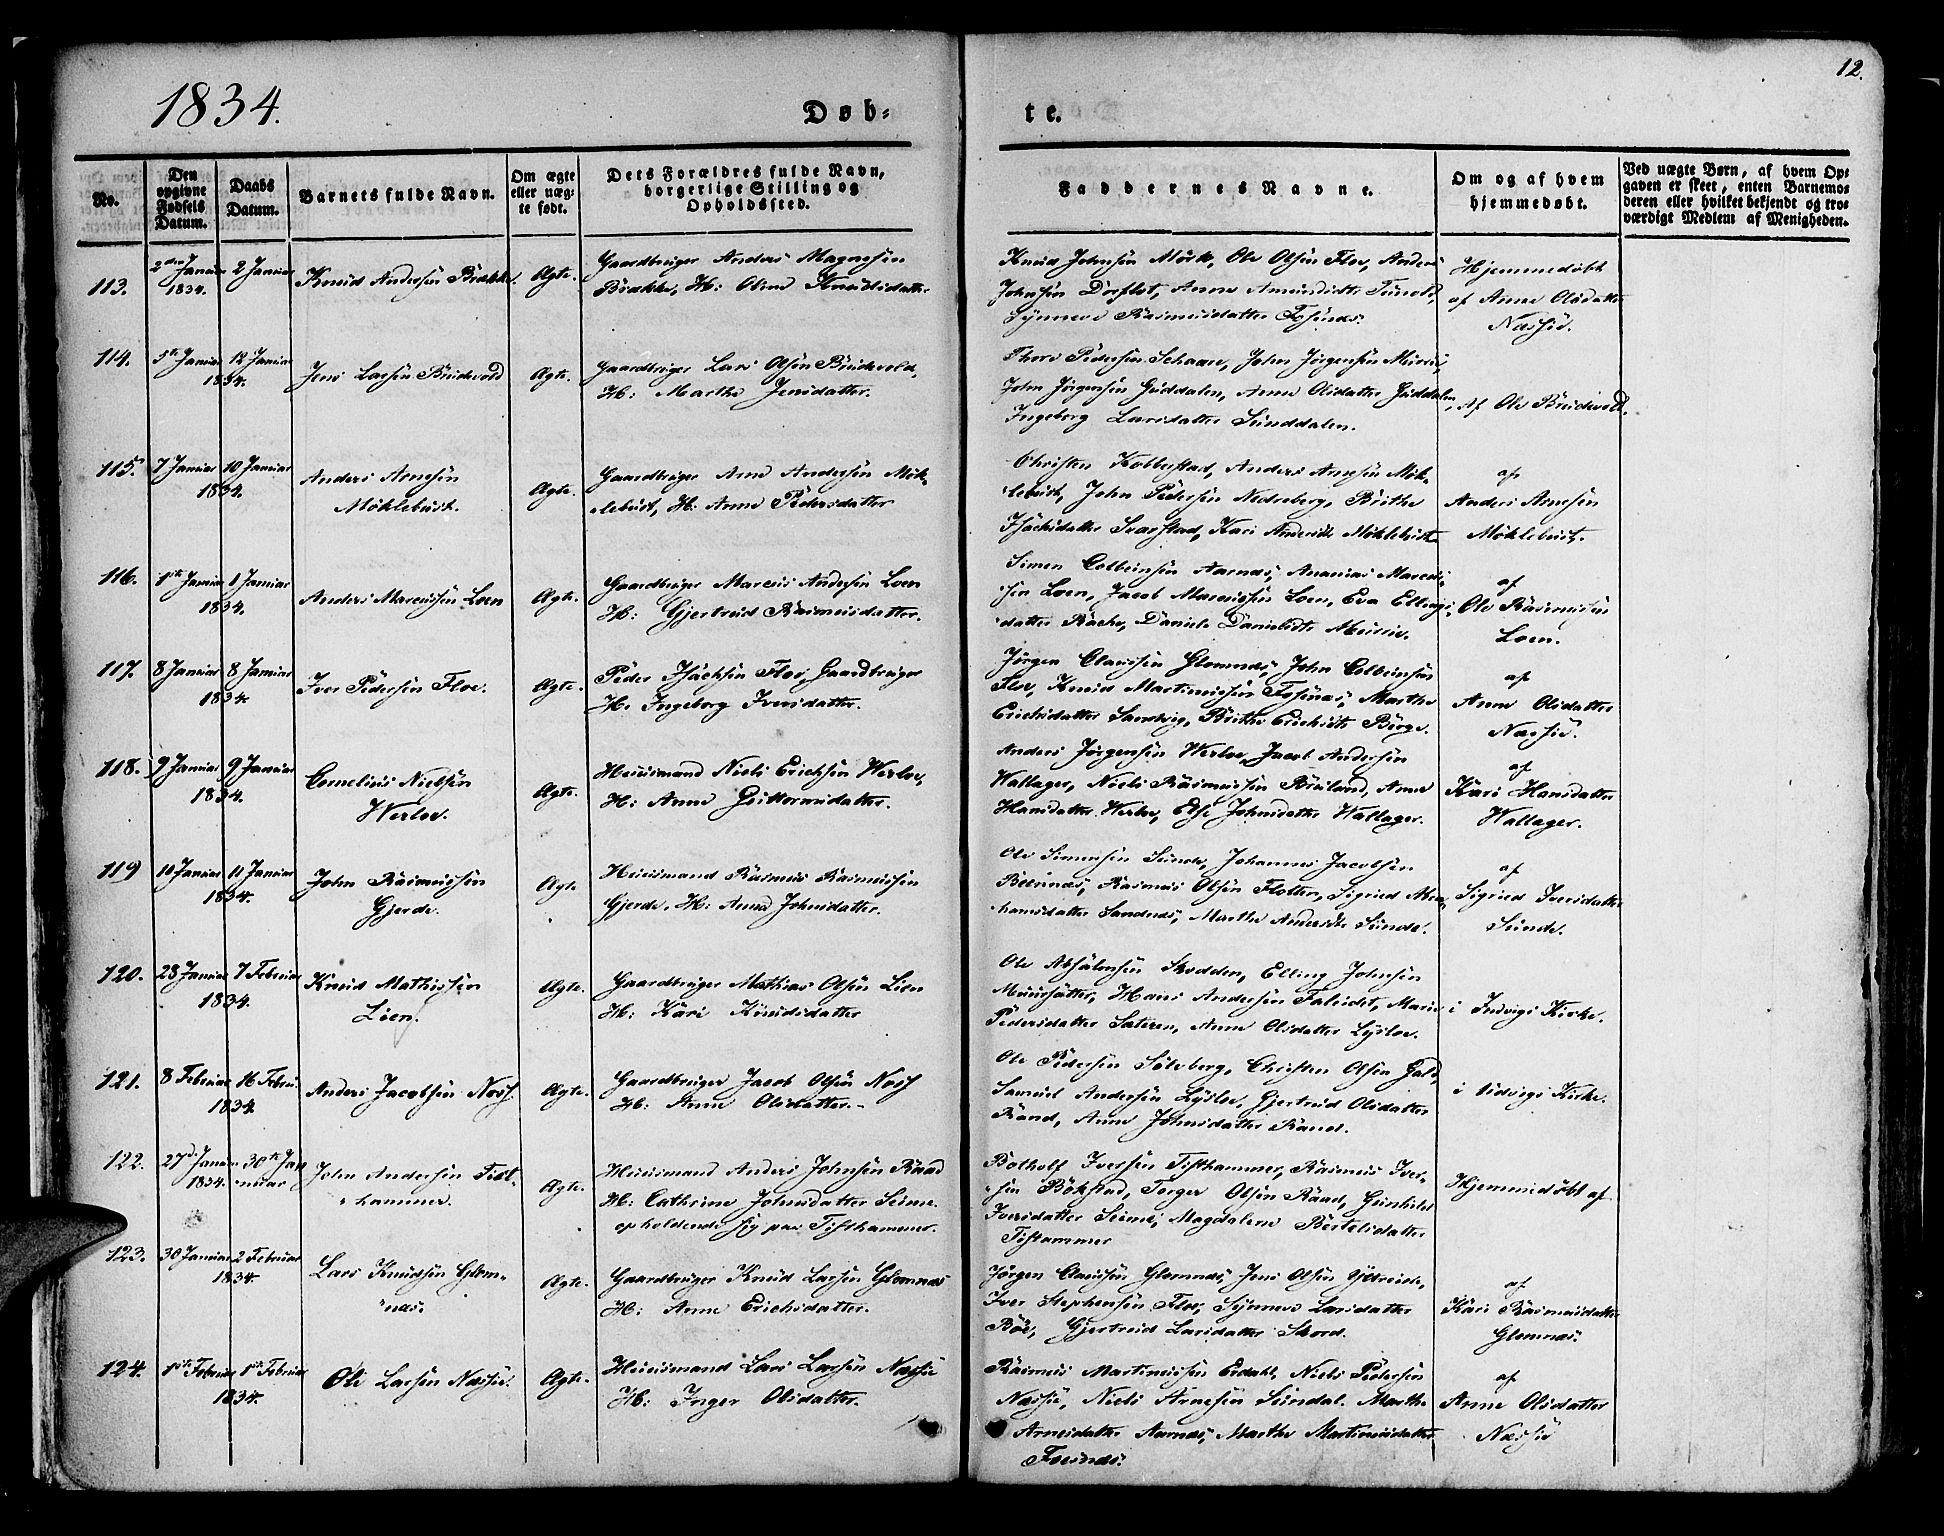 1834.
Døb-
te.
12.
No.
Den opgivne Fødsels Datum.
Daabs Datum.
Barnets fulde Navn.
Om ægte eller uæg-
te født.
Dets Forældres fulde Navn, borgerlige Stilling og Opholdssted.
Faddernes Navne.
Om og af hvem hjemmedøbt.
Ved uægte Børn, af hvem Op-
gaven er skeet, enten Barnemo-
deren eller hvilket bekjendt og tro-
værdigt Medlem af Menigheden.
113.
2den Januar 1834.
2 Januar
Knud Andersen Brække.
Ægte.
Gaardbruger Anders Magnesen
Brække, H: Oline Knudsdatter
Knud Johnsen Mörk, Ole Olsen Floe, Anders
Johnsen Dorflot, Anne Amundsdtter Tunold,
Synneve Rasmusdatter Fosnæs.
Hjemmedøbt
af Anne Olsdatter
Næssie.
114.
5te Januar 12 Januar
1834.
Jens Larsen Brudevold
Ægte.
Gaardbruger Lars Olsen Brudevold,
H: Marthe Jensdatter.
Thore Pedersen Schaare, John Jörgensen Muriis,
John Jörgensen Guddalen, Anne Olsdatter Guddalen,
Ingeborg Larsdatter Sunddalen.
Af Ole Brudevold.
115.
7 Januar 10 Januar
1834.
Anders Arnesen
Möklebust.
Ægte.
Gaardbruger Arne Andersen Mök-
lebust, H: Anne Pedersdatter
Christen Kobberstad, Anders Arnesen Mök-
lebust, John Pedersen Nedreberg, Brithe
Isachsdatter Svarstad, Kari Andersdtr Möklebust
af
Anders Arnesen
Möklebust.
116.
1ste Januar 1 Januar
1834.
Anders Marcussen Loen
Ægte.
Gaardbruger Marcus Andersen Loen
H: Gjertrud Rasmusdatter.
Simen Colbeinsen Aarnæs, Ananias Marcus-
sen Loen, Jacob Marcussen Loen, Eva Ellings-
datter Rache, Daniele Danielsdtr Muriis.
af
Ole Rasmussen
Loen.
117.
8 Januar 8 Januar
1834.
Iver Pedersen Floe.
Ægte.
Peder Isachsen Floe, Gaardbruger
H: Ingeborg Iversdatter.
Jörgen Claussen Glomnæs, John Colbeinsen
Floe, Knud Martinussen Fosnæs, Marthe
Erichsdatter Sandvig, Brithe Erichsdtr Börge.
af
Anne Olsdatter
Næssie.
118.
9 Januar 9 Januar
1834.
Cornelius Nielsen
Werloe.
Ægte.
Huusmand Niels Erichsen Werloe,
H: Anne Guttormsdatter.
Anders Jörgensen Werloe, Jacob Andersen
Wallager, Niels Rasmussen Breiland, Anne
Hansdatter Werloe, Else Johnsdatter Wallager.
af
Kari Hansdatter
Wallager.
119
11 Januar 11 Januar
1834.
John Rasmussen
Gjerde.
Ægte
Huusmand Rasmus Rasmussen
Gjerde. H: Anna Johnsdatter.
Ole Simensen Sunde, Johannes Jacobsen
Beenæs, Rasmus Olsen Flotten, Sigried Abra-
hamsdatter Sandnæs, Marthe Andersdtr Sunde.
af
Sigried Iversdatter
Sunde.
120.
28 Januar 7 Februar
1834.
Knud Mathissen
Lien.
Ægte.
Gaardbruger Mathias Olsen Lien
H: Kari Knudsdatter
Ole Absalonsen Skodden, Elling Johnsen
Muursætter, Hans Andersen Faleidet, Marie
Pedersdatter Sæteren, Anne Olsdatter Lysloe.
i Indvigs Kirke.
121.
8 Februar 16 Febru.
1834.
Anders Jacobsen Noss.
Ægte.
Gaardbruger Jacob Olsen Noss
H: Anne Olsdatter.
Ole Pedersen Sölvberg, Christen Olsen Gald,
Samuel Andersen Lysloe, Gjertrud Olsdatter
Rand, Anne Johnsdatter Raned.
i Udvigs Kirke.
122.
27d Januar 30te Ja-
1834. nuar
John Andersen Tist-
hammer.
Ægte.
Huusmand Anders Johnsen Raad
H: Cathrine Johnsdatter Seime
opholdende sig paa Tisthammer.
Botholf Iversen Tisthammer, Rasmus Iver-
sen Bökstad, Torger Olsen Raad, Gunhild
Iversdatter Seime, Magdalene Bertelsdatter
Tisthammer
Hjemmedöbt af
123.
30 Januar 2 Februar
1834.
Lars Knudsen Glom-
næs.
Ægte.
Gaardbruger Knud Larsen Glomnæs
H: Anne Erichsdatter.
Jörgen Claussen Glomnæs, Jens Olsen Ytreeide,
Iver Stephensen Floe, Synneve Larsdatter
Böe, Gjertrud Larsdatter Skord.
af
Kari Rasmusdatter
Glomnæs.
124.
1ste Februar 1ste Februar
1834.
Ole Larsen Næssie.
Ægte.
Huusmand Lars Larsen Næssie
H: Inger Olsdatter.
Rasmus Martinussen Erdahl, Niels Pedersen
Næssie, Niels Arnesen Sundal. Marthe
Arnesdatter Aarnæs, Marthe Martinusdatter
Fosnæs.
af
Anne Olsdatter
Næssie